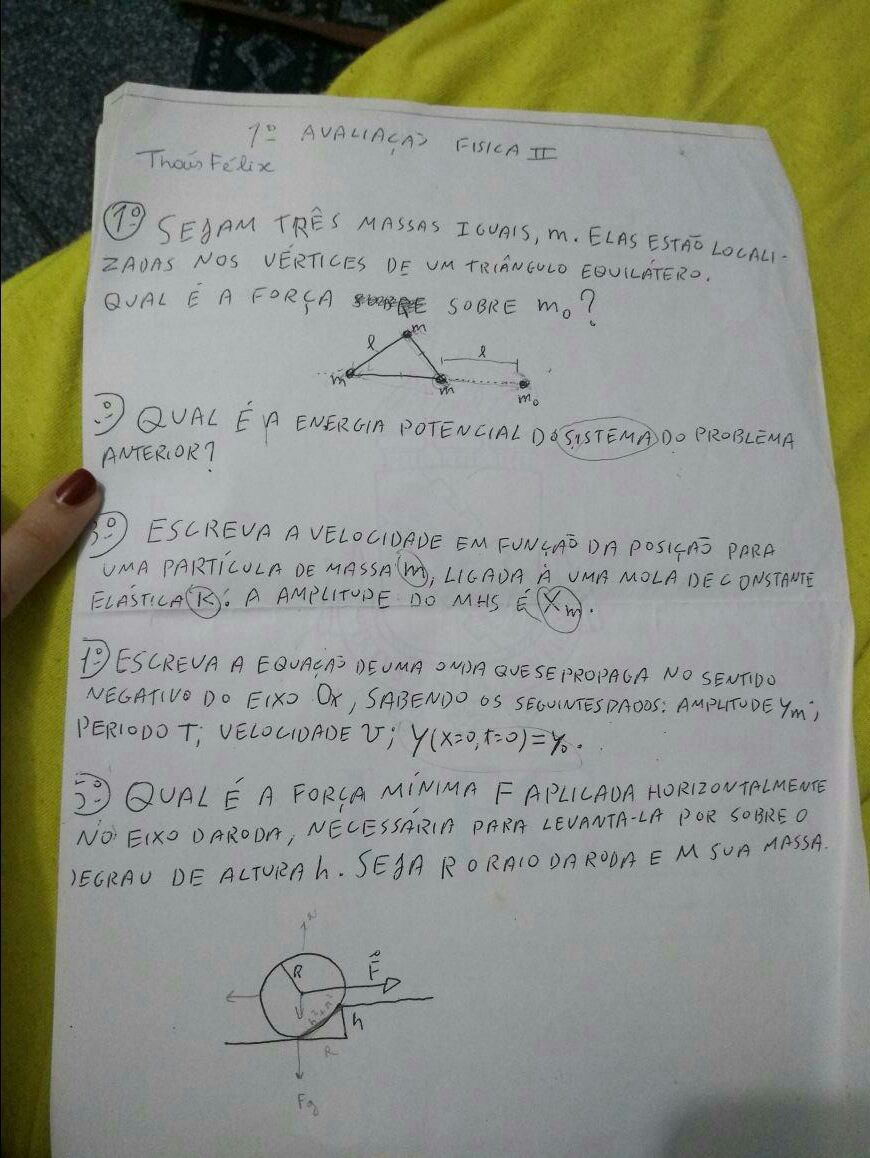 1º AVALIAÇÃO FISICA II
Thaís Félix
1º SEJAM TRÊS MASSAS IGUAIS, m. ELAS ESTÃO LOCALI-
ZADAS NOS VÉRTICES DE UM TRIÂNGULO EQUILÁTERO.
QUAL É A FORÇA SOBRE m₀?
m
l
l
m
m
m₀
º QUAL É A ENERGIA POTENCIAL DO SISTEMA DO PROBLEMA
ANTERIOR?
3º ESCREVA A VELOCIDADE EM FUNÇÃO DA POSIÇÃO PARA
UMA PARTÍCULA DE MASSA m, LIGADA À UMA MOLA DE CONSTANTE
ELÁSTICA K. A AMPLITUDE DO MHS É Xm.
1º ESCREVA A EQUAÇÃO DE UMA ONDA QUE SE PROPAGA NO SENTIDO
NEGATIVO DO EIXO OX, SABENDO OS SEGUINTES DADOS: AMPLITUDE Ym;
PERIODO T; VELOCIDADE V; Y(X=0,t=0)=Y₀.
5º QUAL É A FORÇA MÍNIMA F APLICADA HORIZONTALMENTE
NO EIXO DA RODA, NECESSÁRIA PARA LEVANTA-LA POR SOBRE O
DEGRAU DE ALTURA h. SEJA R O RAIO DA RODA E M SUA MASSA.
N
R
F
h
R
Fg